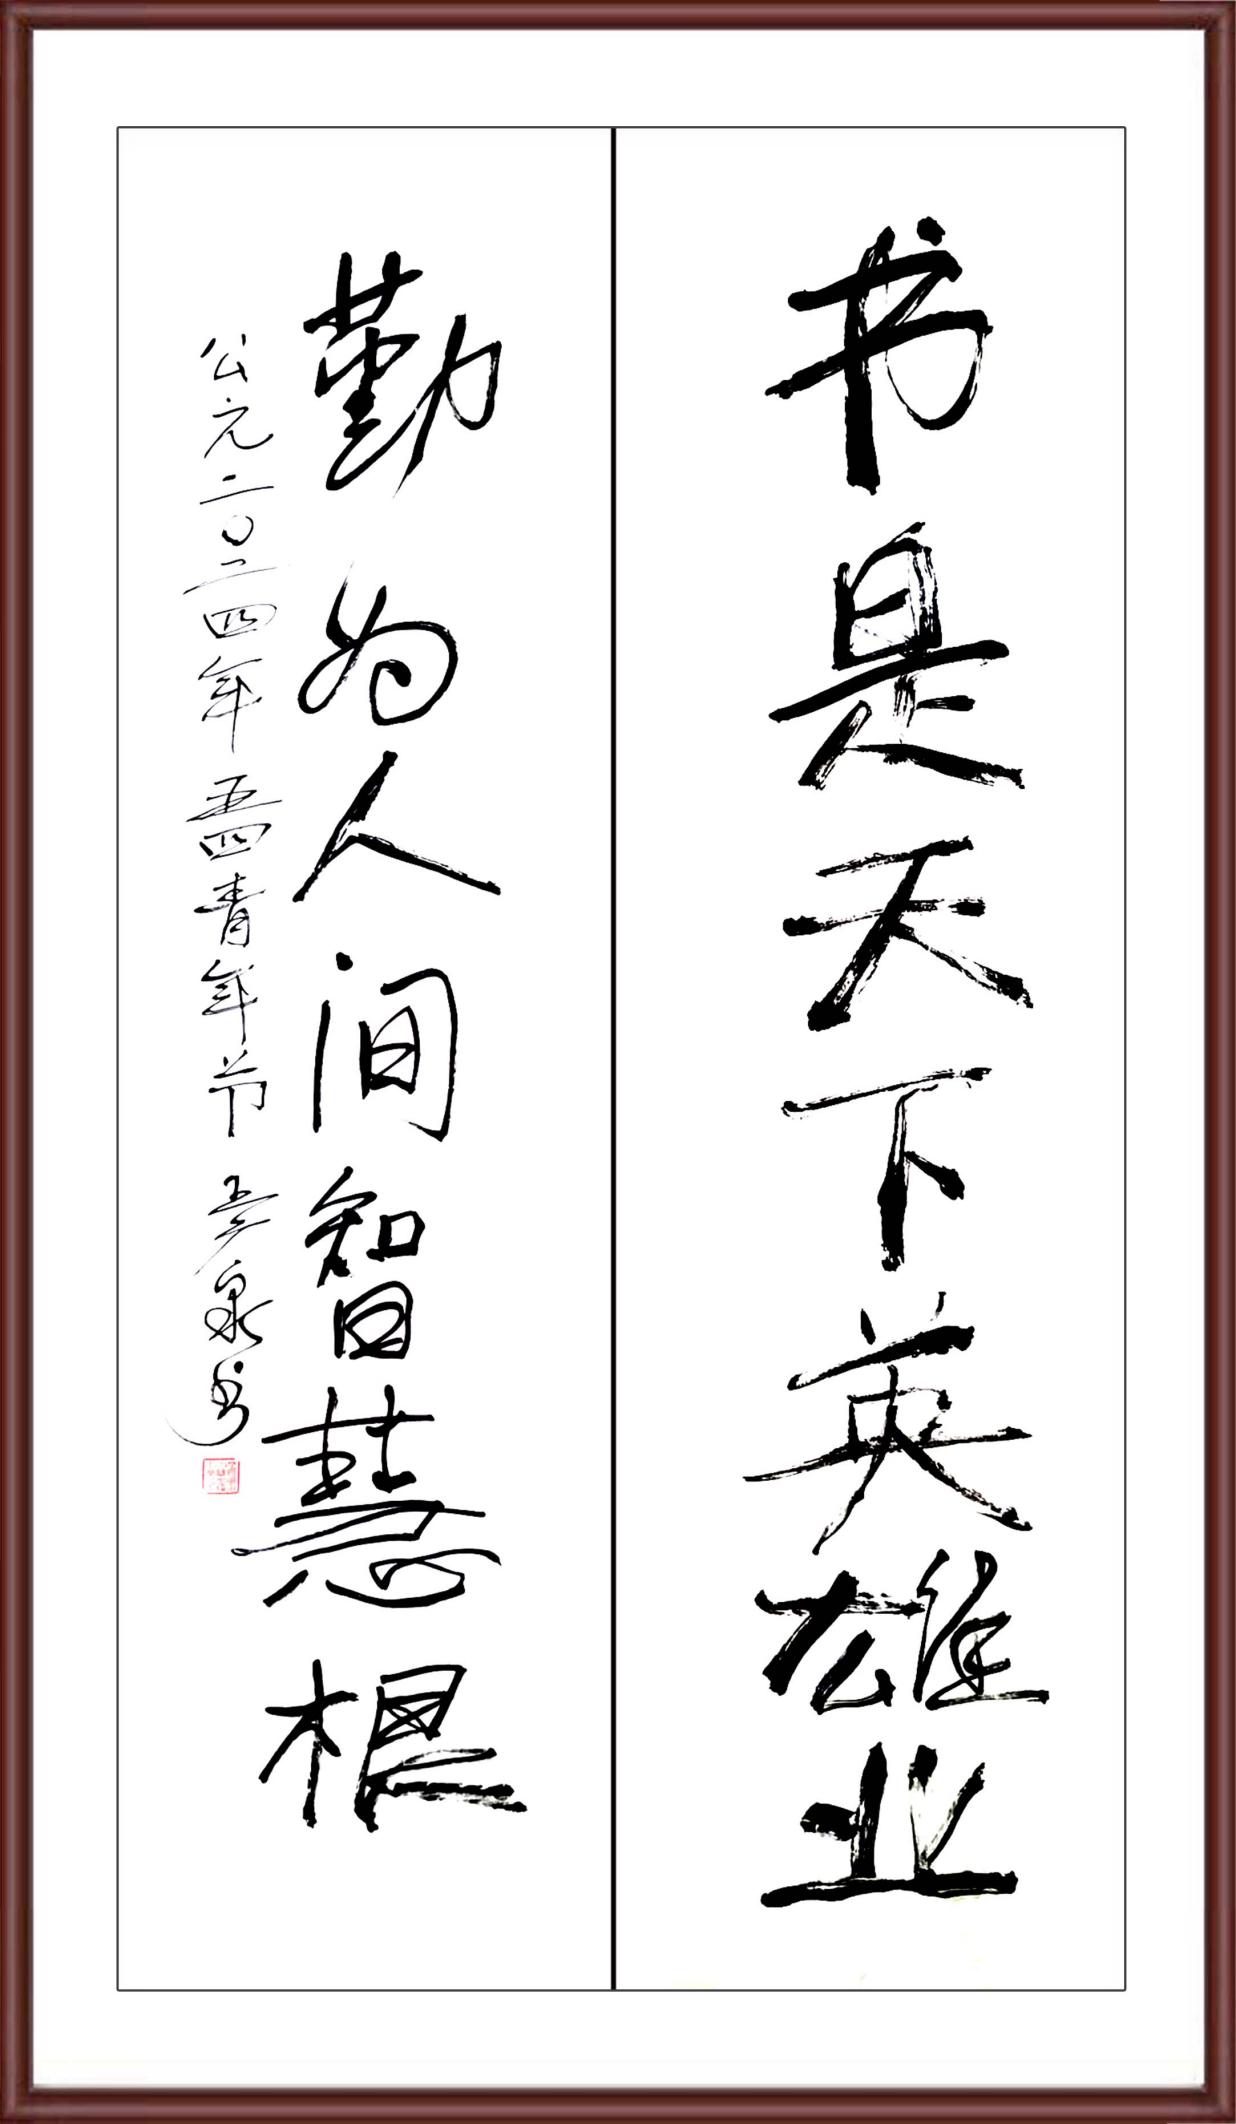 书是天下英雄业
勤为人间智慧根
公元二〇二四年五四青年节 泉书